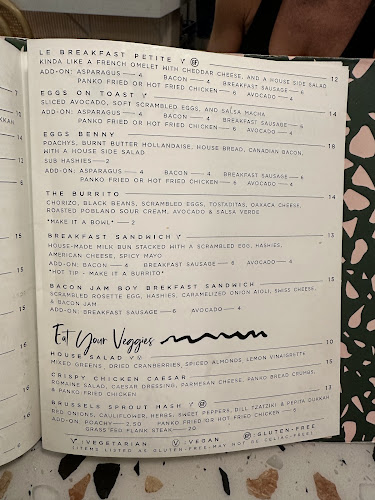 LE BREAKFAST PETITE V GF 12
KINDA LIKE A FRENCH OMELET WITH CHEDDAR CHEESE, AND A HOUSE SIDE SALAD
ADD-ON: ASPARAGUS — 4 BACON — 4 BREAKFAST SAUSAGE — 6
PANKO FRIED OR HOT FRIED CHICKEN — 6 AVOCADO — 4
EGGS ON TOAST V 14
SLICED AVOCADO, SOFT SCRAMBLED EGGS, AND SALSA MACHA
ADD-ON: ASPARAGUS — 4 BACON — 4 BREAKFAST SAUSAGE — 6
PANKO FRIED OR HOT FRIED CHICKEN — 6 AVOCADO — 4
EGGS BENNY 18
POACHYS, BURNT BUTTER HOLLANDAISE, HOUSE BREAD, CANADIAN BACON,
WITH A HOUSE SIDE SALAD
SUB HASHIES — 2
ADD-ON: ASPARAGUS — 4 BACON — 4 BREAKFAST SAUSAGE — 6
PANKO FRIED OR HOT FRIED CHICKEN — 6 AVOCADO — 4
THE BURRITO 14
CHORIZO, BLACK BEANS, SCRAMBLED EGGS, TOSTADITAS, OAXACA CHEESE,
ROASTED POBLANO SOUR CREAM, AVOCADO & SALSA VERDE
*MAKE IT A BOWL* — 2
BREAKFAST SANDWICH V 13
HOUSE-MADE MILK BUN STACKED WITH A SCRAMBLED EGG, HASHIES,
AMERICAN CHEESE, SPICY MAYO
ADD-ON: BACON — 4 BREAKFAST SAUSAGE — 6 AVOCADO — 4
*HOT TIP - MAKE IT A BURRITO*
BACON JAM BOY BREKFAST SANDWICH 15
SCRAMBLED ROSETTE EGG, HASHIES, CARAMELIZED ONION AIOLI, SWISS CHEESE,
& BACON JAM
ADD-ON: BREAKFAST SAUSAGE — 6 AVOCADO — 4
Eat Your Veggies
HOUSE SALAD 10
MIXED GREENS, DRIED CRANBERRIES, SPICED ALMONDS, LEMON VINAIGRETTE
CRISPY CHICKEN CAESAR 15
ROMAINE SALAD, CAESAR DRESSING, PARMESAN CHEESE, PANKO BREAD CRUMBS,
& PANKO FRIED CHICKEN
BRUSSELS SPROUT HASH V GF 13
RED ONIONS, CAULIFLOWER, HERBS, SWEET PEPPERS, DILL TZATZIKI & PEPITA DUKKAH
ADD-ON: POACHY — 2.50 PANKO FRIED OR HOT FRIED CHICKEN — 6
GRASS FED FLANK STEAK — 28
V :VEGETARIAN V :VEGAN GF :GLUTEN-FREE
(ITEMS LISTED AS GLUTEN-FREE MAY NOT BE CELIAC-FREE)